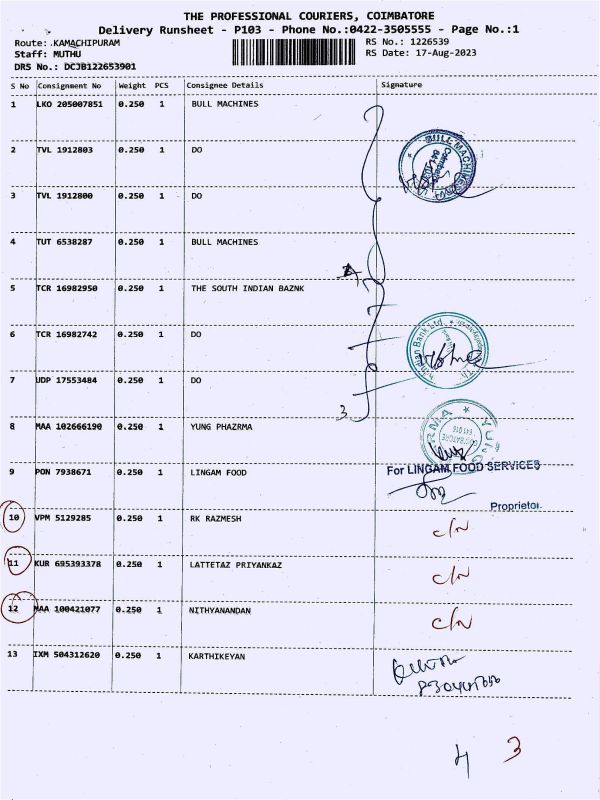 THE PROFESSIONAL COURIERS, COIMBATORE
Delivery Runsheet - P103 - Phone No.:0422-3505555 - Page No.:1
Route: .KAMACHIPURAM
RS No.: 1226539
Staff: MUTHU
RS Date: 17-Aug-2023
DRS No.: DCJB122653901
S No Consignment No Weight PCS Consignee Details Signature
1 LKO 205007851 0.250 1 BULL MACHINES
2 TVL 1912803 0.250 1 DO
BULL MACHINES
3 TVL 1912800 0.250 1 DO
4 TUT 6538287 0.250 1 BULL MACHINES
5 TCR 16982950 0.250 1 THE SOUTH INDIAN BAZNK
6 TCR 16982742 0.250 1 DO
Indian Bank Ltd.
7 UDP 17553484 0.250 1 DO
3
8 MAA 102666190 0.250 1 YUNG PHAZRMA
YUNG
9 PON 7938671 0.250 1 LINGAM FOOD
For LINGAM FOOD SERVICES
Proprietor.
10 VPM 5129285 0.250 1 RK RAZMESH
c/n
11 KUR 695393378 0.250 1 LATTETAZ PRIYANKAZ
c/n
12 MAA 100421077 0.250 1 NITHYANANDAN
c/n
13 IXM 504312620 0.250 1 KARTHIKEYAN
4 3